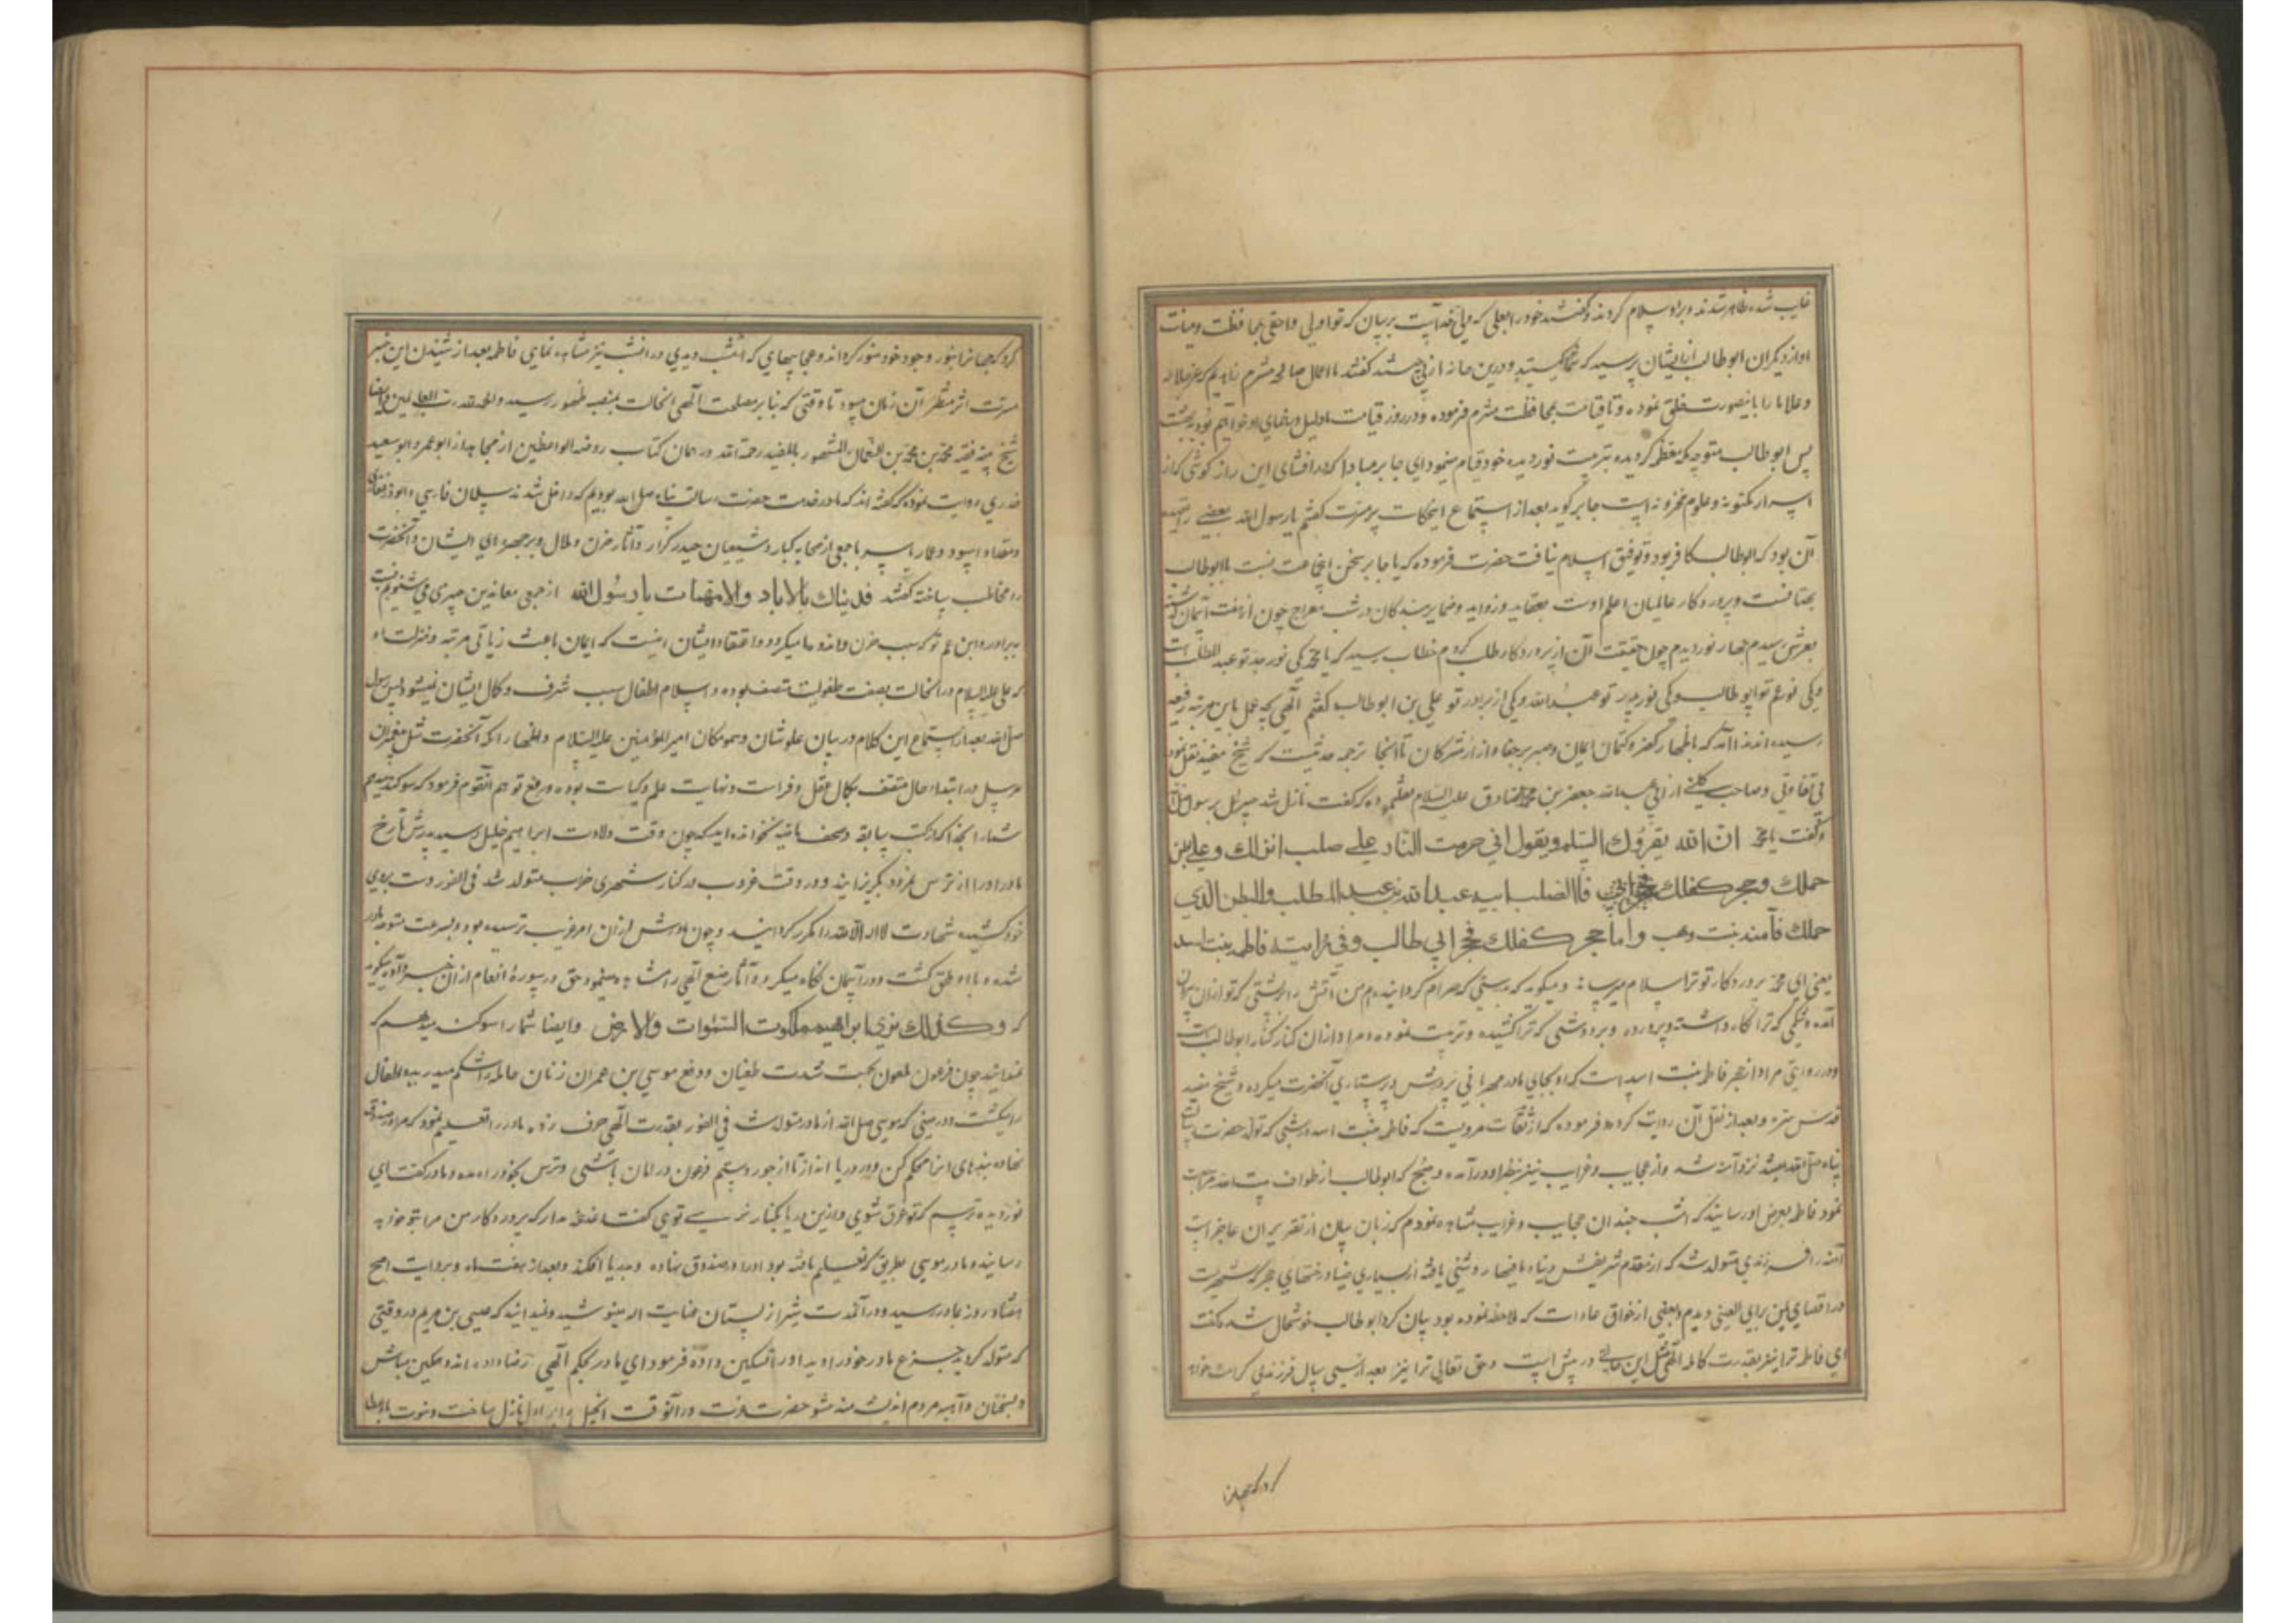 غایب شده ظاهر شدند و بر او سلام کردند و گفتند خود را بعلی که ولی خداست برسان که تو اولی و احقی بمحافظت و صیانت
او از دیگران ابوطالب از ایشان پرسید که شما کیستید و درین خانه از پی چیستید گفتند ما اعمال صالحه
و علا ما را باینصورت خلق نموده و تا قیامت بمحافظت فرموده و در روز قیامت ما دلیل و رهنمای او خواهیم بود به بهشت
پس ابوطالب متوجه مکه معظمه گردیده بتربیت نوردیده خود قیام مینمود ای جابر مبادا که در افشای این راز کوشی که از
اسرار مکنونه و علوم مخزونه است جابر گوید بعد از استماع این حکایت پرمسرت گفتم یا رسول الله بعضی را
آن بود که ابوطالب کافر بود و توفیق اسلام نیافت حضرت فرموده که یا جابر سخن این جماعت نسبت بابوطالب
بهتانست و پروردکار عالمیان اعلم اوست بعقاید و ضمایر بندکان در شب معراج چون از هفت آسمان
بعرش رسیدم چهار نور دیدم چون حقیقت آن از پروردکار طلب کردم خطاب رسید که یا محمد یکی نور جد تو عبدالمطلب است
و یکی نور عم تو ابوطالب و یکی نور پدر تو عبدالله و یکی از برادر تو علی بن ابوطالب گفتم الهی بچه عمل باین مرتبه رفیعه
رسیده اند ندا آمد که باظهار کفر و کتمان ایمان و صبر بر جفا و آزار مشرکان تا اینجا ترجمه حدیثیست که شیخ مفید نقل نموده
از ابی عبدالله جعفر بن محمد الصادق علیه السلام که گفت نازل شد جبرئیل بر رسول
و گفت یا محمد ان الله یقرؤک السلام و یقول انی حرمت النار علی صلب انزلک و علی بطن
حملک و حجر کفلک فالصلب ابیه عبدالله بن عبدالمطلب والبطن الذی
حملک فآمنه بنت وهب و اما حجر کفلک فحجر ابی طالب و فی روایته فاطمه بنت اسد
یعنی ای محمد پروردکار تو ترا سلام میرساند و میکوید که بدرستی که حرام کردانیده ام من آتش را بر پشتی که تو از آن بیرون
آمده و شکمی که ترا نکاه داشته و پرورده و بر دوشی که ترا کشیده و تربیت نموده و مراد از آن کنار کنار ابوطالب است
و در روایتی مراد از حجر فاطمه بنت اسد است که او بجای مادر مهربانی در پرورش و پرستاری آنحضرت میکرده و شیخ مفید
قدس سره و بعد از نقل آن روایت کرده فرموده که از ثقات مرویست که فاطمه بنت اسد در شبی که تولد حضرت رسالت
پناه صلی الله میشد نزد آمنه شد و از عجایب و غرایب نیز بنظر او در آمده و صبح که ابوطالب از طواف بیت الله مراجعت
نمود فاطمه بعرض او رسانید که امشب چندان عجایب و غرایب مشاهده نمودم که زبان بیان از تقریر آن عاجز است
آمنه را فرزندی متولد شد که از مقدم شریفش دنیا و مافیها روشنی یافته از بسیاری ضیا درختهای هجر که شهریست
در اقصای یمن برای العین دیدم و بعضی از خوارق عادات که ملاحظه نموده بود بیان کرد ابوطالب خوشحال شد و گفت
ای فاطمه ترا نیز بقدرت کامله الهی مثل این حالتی در پیش است و حق تعالی ترا نیز بعد از سی سال فرزندی کرامت خواهد
کرد که جهانرا
کرد که جهانرا بنور وجود خود منور کرداند و عجایبهای که امشب دیدی در آنشب نیز مشاهده نمای فاطمه بعد از شنیدن این خبر
مسرت اثر منتظر آن زمان میبود تا وقتی که بنابر مصلحت الهی آنحالت بمنصه ظهور رسید والحمد لله رب العالمین و ایضا
شیخ فقیه محمد بن محمد بن النعمان المشهور بالمفید رحمه الله در همان کتاب روضه الواعظین از مجاهد از ابوعمر و ابوسعید
خدری روایت نموده که گفته اند که ما در خدمت حضرت رسالت پناه صلی الله بودیم که داخل شدند سلمان فارسی و ابوذر غفاری
و مقداد اسود و عمار یاسر با جمعی از صحابه کبار و شیعیان حیدر کرار و آثار حزن و ملال و بر چهره ای ایشان و آنحضرت
را مخاطب ساخته گفتند فدیناک بالاباء والامهات یا رسول الله از جمعی معاندین چیزی می شنویم نسبت
ببرادر و ابن عم تو که سبب حزن و اندوه ما میکردد و اعتقاد ایشان اینست که ایمان باعث زیادتی مرتبه و منزلت
که علی علیه السلام در آنحالت بصفت طفولیت متصف بوده و اسلام اطفال سبب شرف و کمال ایشان نمیشود پس رسول
صلی الله بعد از استماع این کلام در بیان علو شان و سمو مکان امیرالمؤمنین علیه السلام و اظهار آنکه آنحضرت مثل پیغمبران
مرسل در ابتداء حال متصف بکمال عقل و فراست و نهایت علم و کیاست بوده و رفع توهم آنقوم فرمود که سوکند میدهم
شما را بخدا که از کتب سابقه و صحف ماضیه نخوانده اید که چون وقت ولادت ابراهیم خلیل رسید پدرش تارخ
مادر او را از ترس نمرود بگریزانید و در وقت غروب در کنار شهری خراب متولد شد فی الفور دست بروی
خود کشیده شهادت لا اله الا الله را مکرر کردانید و چون مادرش از آن امر غریب ترسیده بود و بسرعت متوجه مادر
شده و با او ناطق گشت و در آسمان نگاه میکرد و آثار صنع الهی را مشاهده مینمود و حق در سوره انعام از آن خبر داده میکوید
که و کذلک نری ابراهیم ملکوت السموات والارض و ایضا شما را سوکند میدهم که
میدانید چون فرعون ملعون بجهت شدت طغیان و دفع موسی بن عمران زنان حامله را شکم میدرید و اطفال
را میکشت و در حینی که موسی صلی الله از مادر متولد شد فی الفور بقدرت الهی حرف زده مادر را تعلیم نمود که مرا در صندوق
نهاده بندهای آنرا محکم کن و در دریا انداز تا از جور و ستم فرعون در امان باشی و ترس بخود راه مده و مادر گفت ای
نوردیده میترسم که تو غرق شوی و ازین دریا بکنار نرسی توی گفت اندیشه مدار که پروردکار من مرا بتو خواهد
رسانید و مادر موسی بطریقی که تعلیم یافته بود او را در صندوق نهاده و بدریا افکند و بعد از هفت ماه و بروایت اصح
هفتاد روز بمادر رسید و در آنمدت شیر از پستان عنایت اله مینوشید و نمیدانید که عیسی بن مریم در وقتی
که متولد کردید جزع مادر خود را دید او را تسکین داده فرمود ای مادر بحکم الهی رضا داده اندوهکین مباش
و بسخنان واهیه مردم اندیشه مند مشو حضرت عزت در آنوقت انجیل را بر او نازل ساخت و نبوت باو عطا